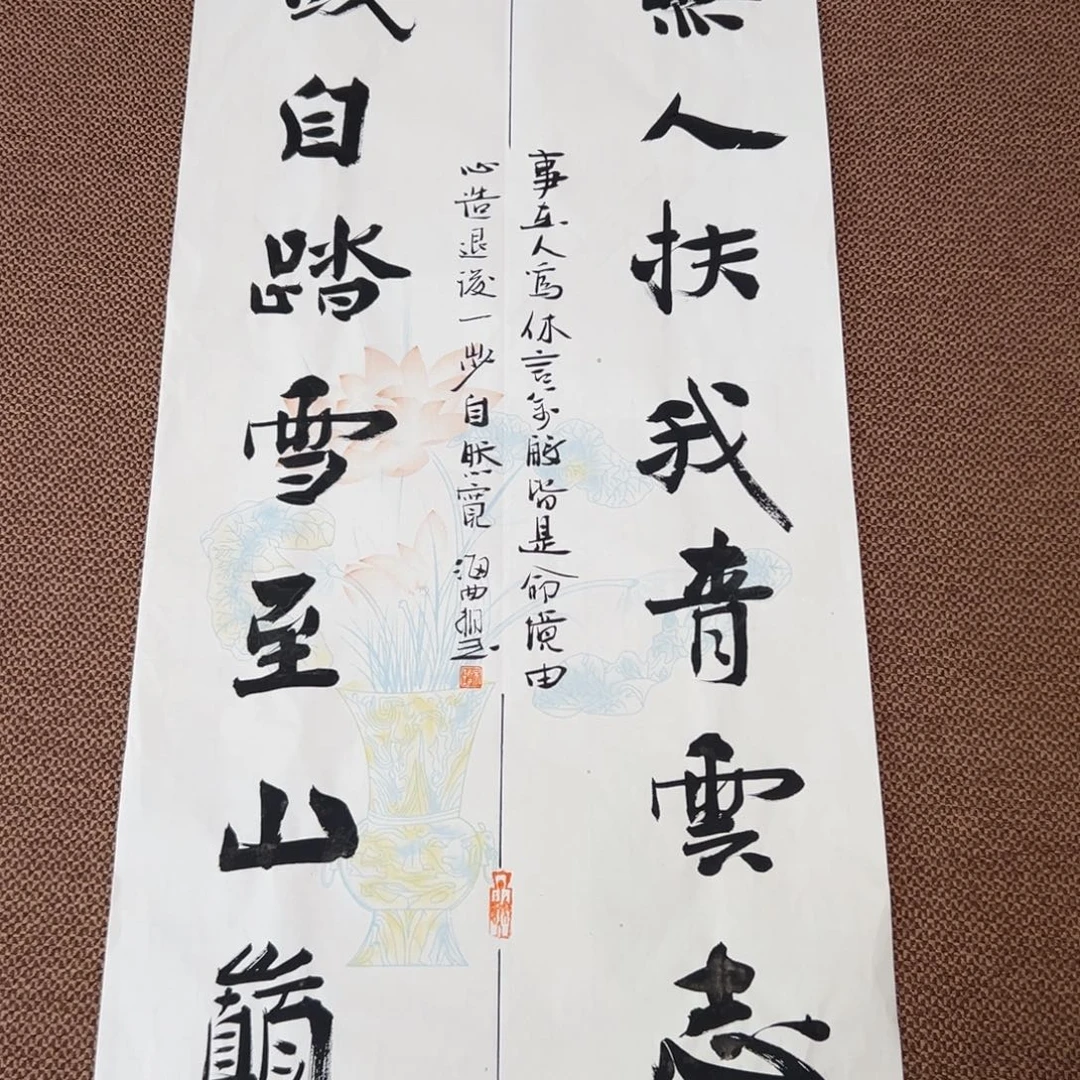 無人扶我青雲志
我自踏雪至山巔
事在人為休言萬般皆是命境由
心造退後一步自然寬